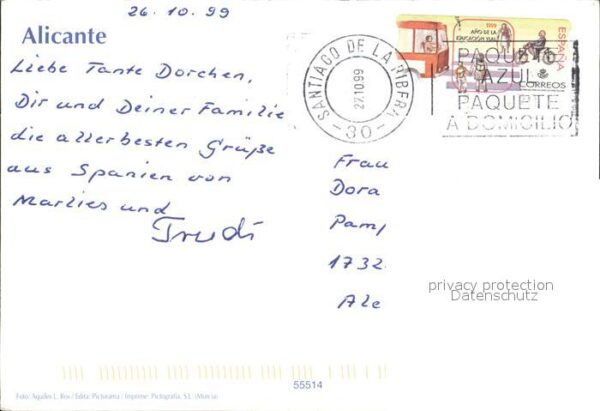 26.10.99
Alicante
Liebe Tante Dorchen,
Dir und Deiner Familie
die allerbesten Grüße
aus Spanien von
Marlies und
Trudi
SANTIAGO DE LA RIBERA
27.10.99
-30-
1999
AÑO DE LA
EDUCACIÓN VIAL
ESPAÑA
CORREOS
PAQUETE
AZUL
PAQUETE
A DOMICILIO
Frau
Dora
Pamp
1732
Ale
privacy protection
Datenschutz
55514
Foto: Aquiles L. Ros / Edita: Pictorama / Imprime: Pictografía, S.L. (Murcia)